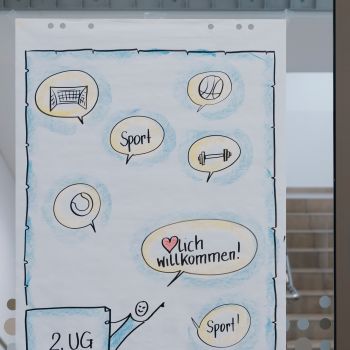 Sport
❤lich
willkommen!
Sport!
2. UG